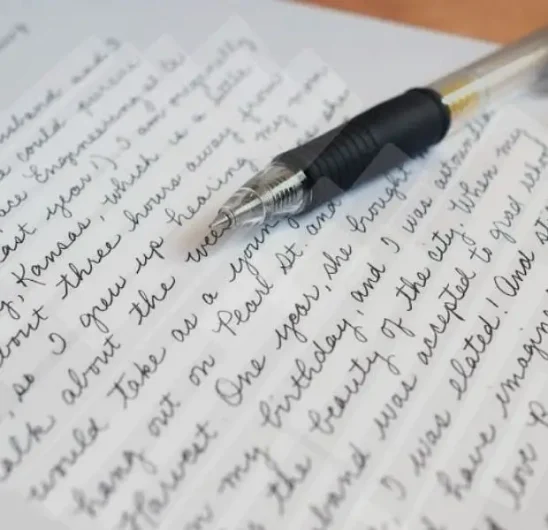 usband and I
could pursue
ace Engineering at
last year.) I am originally
y, Kansas, which is a little
about three hours away from
, so I grew up hearing my mom
alk about the wee she
would take as a young
hang out on Pearl St. and
Harvest. One year, she brought
n my birthday, and I was astounde
the beauty of the city. When my
band was accepted to grad schoo
I was elated! And sti
have imagin
love